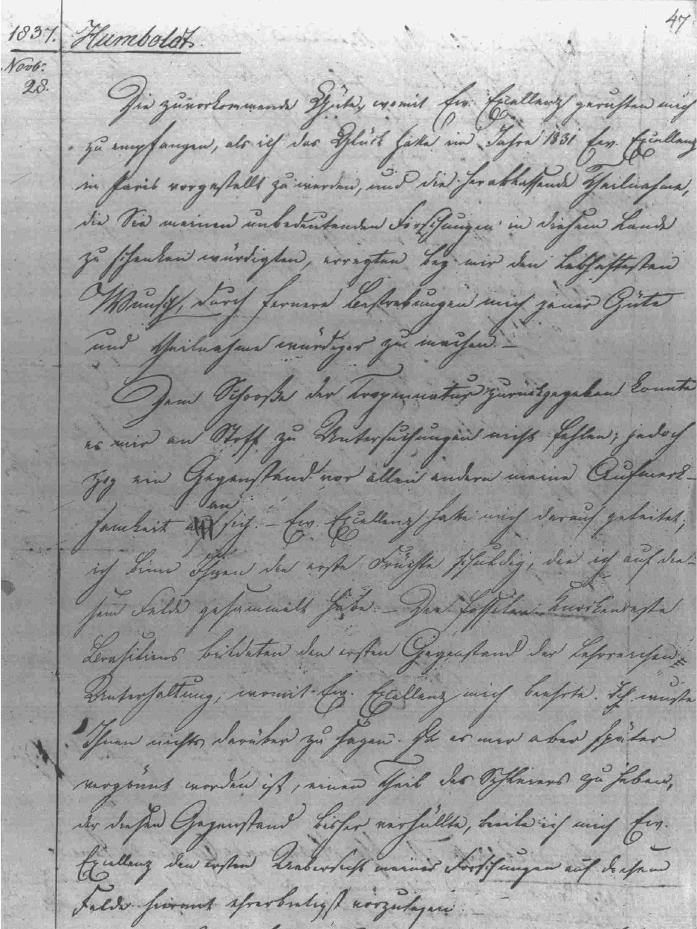 47
1837. Humboldt.
Novb:
28.
Die zuvorkommende Güte, womit Ew. Excellenz geruhten mich
zu empfangen, als ich das Glück hatte im Jahre 1831 Ew. Excellenz
in Paris vorgestellt zu werden, und die herablassende Theilnahme,
die Sie meinen unbedeutenden Forschungen in diesem Lande
zu schenken würdigten, erregten bey mir den lebhaftesten
Wunsch, durch fernere Bestrebungen mich jener Güte
und Theilnahme würdiger zu machen. –
Dem Schooße der Tropennatur zurückgegeben konnte
es mir an Stoff zu Untersuchungen nicht fehlen; jedoch
zog ein Gegenstand vor allen andern meine Aufmerk-
samkeit an sich. – Ew. Excellenz hatte mich darauf geleitet;
ich bin Ihnen die erste Früchte schuldig, die ich auf die-
sem Felde gesammelt habe. – Die fossilen Knochenreste
Brasiliens bildeten den ersten Gegenstand der lehrreichen
Unterhaltung, womit Ew. Excellenz mich beehrte. Ich wußte
Ihnen nichts darüber zu sagen. Da es mir aber später
vergönnt worden ist, einen Theil des Schleiers zu heben,
der diesen Gegenstand bisher verhüllte, beeile ich mich Ew.
Excellenz den ersten Uebersicht meiner Forschungen auf diesem
Felde hiermit ehrerbietigst vorzulegen.